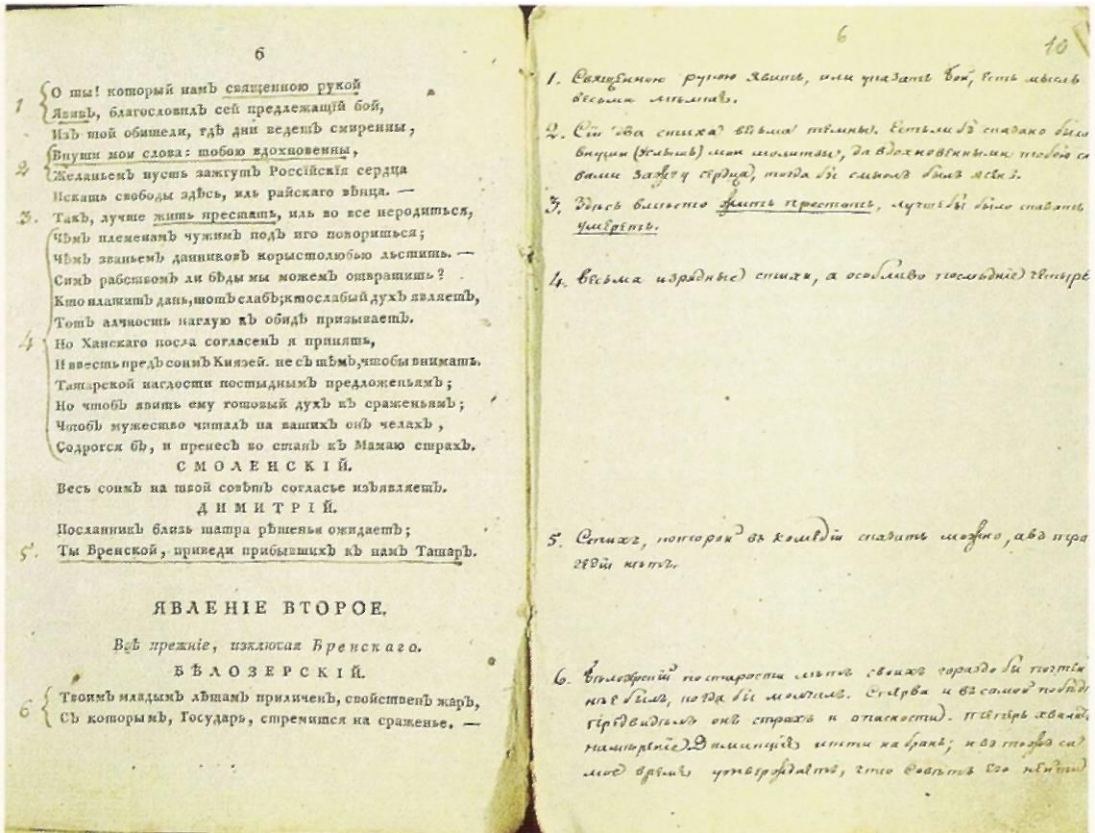 6
1 О ты! который намЪ священною рукой
ЯвивЪ, благословилЪ сей предлежащїй бой,
ИзЪ той обители, гдѣ дни ведешЪ смиренны,
2 Внуши мои слова: тобою вдохновенны,
ЖеланьемЪ пусть зажгутЪ Россїйскїя сердца
Искать свободы здѣсь, иль райскаго вѣнца. —
3. ТакЪ, лучше жить престать, иль во все неродиться,
ЧѣмЪ племенамЪ чужимЪ подЪ иго покориться;
ЧѣмЪ званьемЪ данниковЪ корыстолюбью льстить. —
СимЪ рабствомЪ ли бѣды мы можемЪ отвратить?
Кто платитЪ дань, тотЪ слабЪ; кто слабый духЪ являетЪ,
ТотЪ алчность наглую кЪ обидѣ призываетЪ.
4 Но Ханскаго посла согласенЪ я принять,
И ввесть предЪ сонмЪ Князей. не сЪ тѣмЪ, чтобы внимать
Татарской наглости постыднымЪ предложеньямЪ;
Но чтобЪ явить ему готовый духЪ кЪ сраженьямЪ;
ЧтобЪ мужество читалЪ на вашихЪ онЪ челахЪ,
Содрогся бЪ, и пренесЪ во станЪ кЪ Мамаю страхЪ.
СМОЛЕНСКІЙ.
Весь сонмЪ на твой совѣтЪ согласье изЪявляетЪ.
ДИМИТРІЙ.
ПосланникЪ близь шатра рѣшенья ожидаетЪ;
5. Ты Бренской, приведи прибывшихЪ кЪ намЪ ТатарЪ.
ЯВЛЕНІЕ ВТОРОЕ.
Всѣ прежнїе, изключая Бренскаго.
БѢЛОЗЕРСКІЙ.
6 ТвоимЪ младымЪ лѣтамЪ приличенЪ, свойственЪ жарЪ,
СЪ которымЪ, Государь, стремишся на сраженье. —
6
10
1. Священною рукою явить, или указать бой, есть мысль
весьма
2. Сїи два стиха весьма темны. Естьли бѣ сказано было
внуши (услышь) мои молитвы, да вдохновенными тобою сло
вами зажгу сердца, тогда бы смыслъ былъ ясенъ.
3. Здѣсь вмѣсто жить престать, лучше бы было сказать
умереть.
4. Весьма изрядные стихи, а особливо послѣднїе четыре
5. Стихъ, которой въ комедїи сказать можно, а въ тра
гедїи нѣтъ.
6. Бѣлозерскїй по старости лѣтъ своихъ гораздо бы почтен
нѣе былъ, когда бы молчилъ. Сперва и въ самой побѣдѣ
предвидѣлъ онъ страхъ и опасности. теперь хвалитъ
намѣренїе Димитрїя итти на брань; и въ тожъ са
мое время утверждаетъ, что совѣтъ его